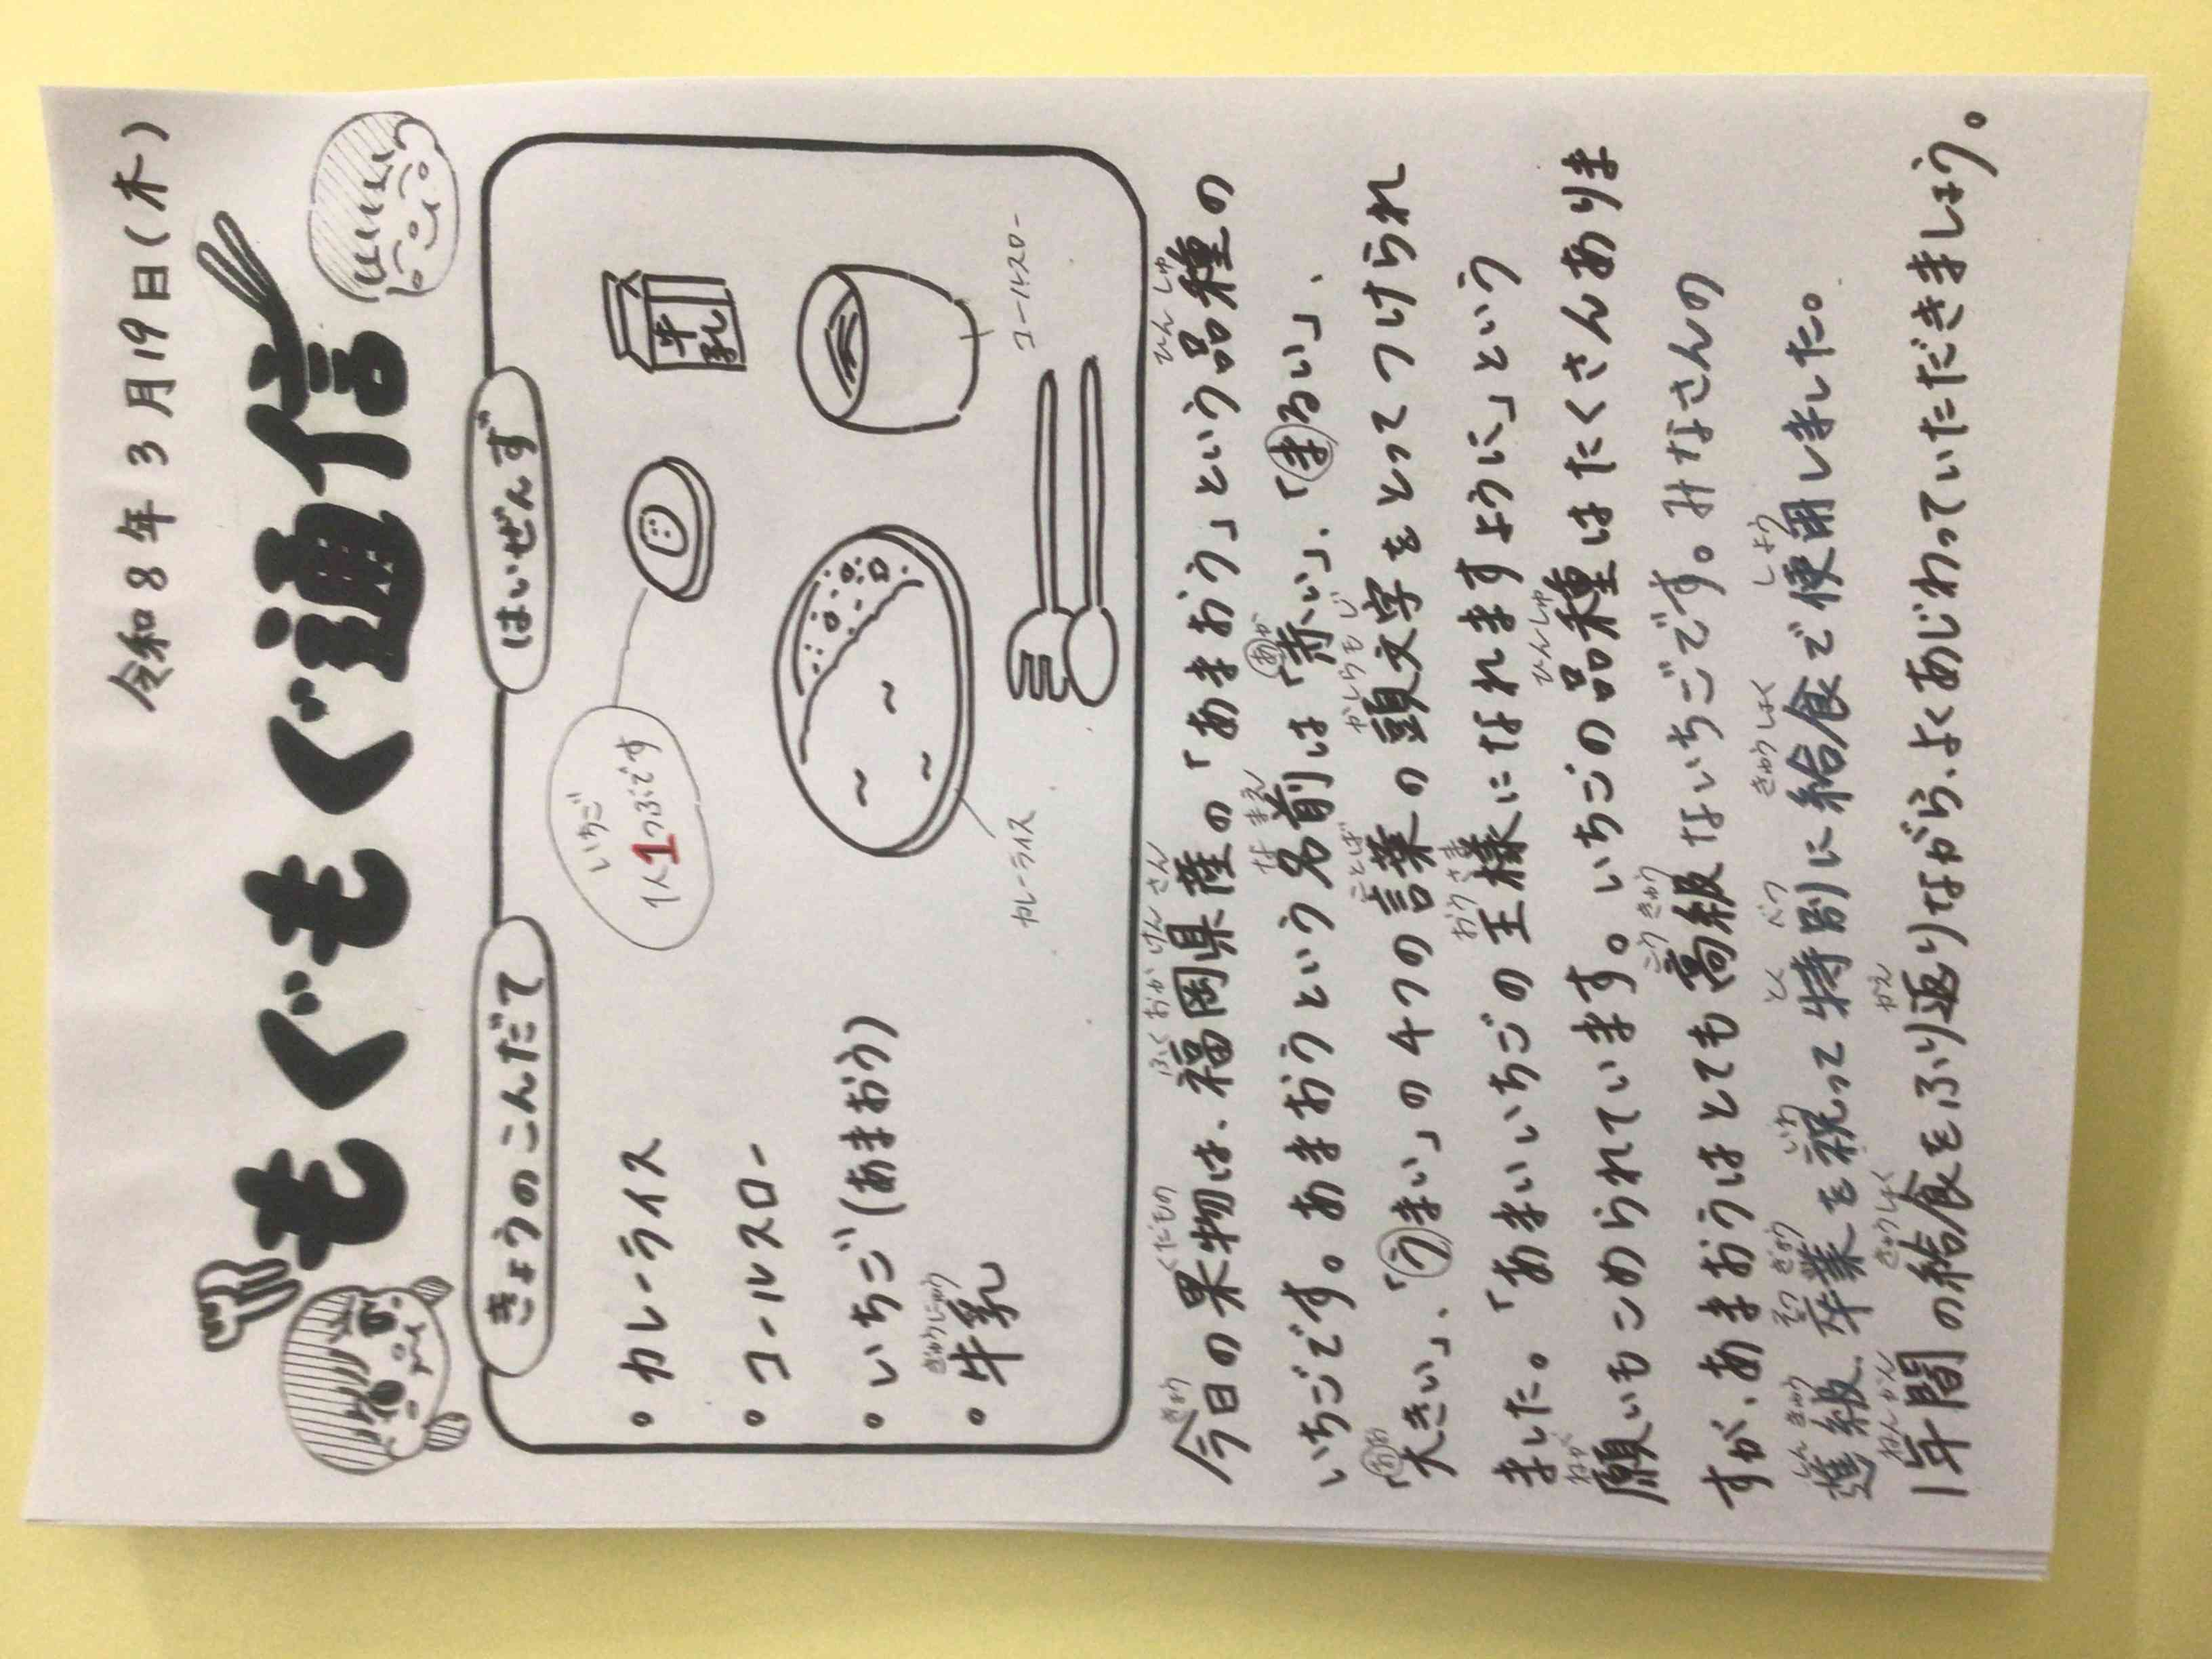 令和8年3月19日(木)
もぐもぐ通信
きょうのこんだて
はいぜんず
・カレーライス
・コールスロー
・いちご(あまおう)
・牛乳
ぎゅうにゅう
いちご
1人1つぶです
牛乳
カレーライス
コールスロー
今日の果物は、福岡県産の「あまおう」という品種の
いちごです。あまおうという名前は「赤い」、「まるい」、
「大きい」、「うまい」の4つの言葉の頭文字をとってつけられ
ました。「あまいいちごの王様になれますように」という
願いもこめられています。いちごの品種はたくさんありま
すが、あまおうはとても高級ないちごです。みなさんの
進級、卒業を祝って特別に給食で使用しました。
1年間の給食をふり返りながら、よくあじわっていただきましょう。